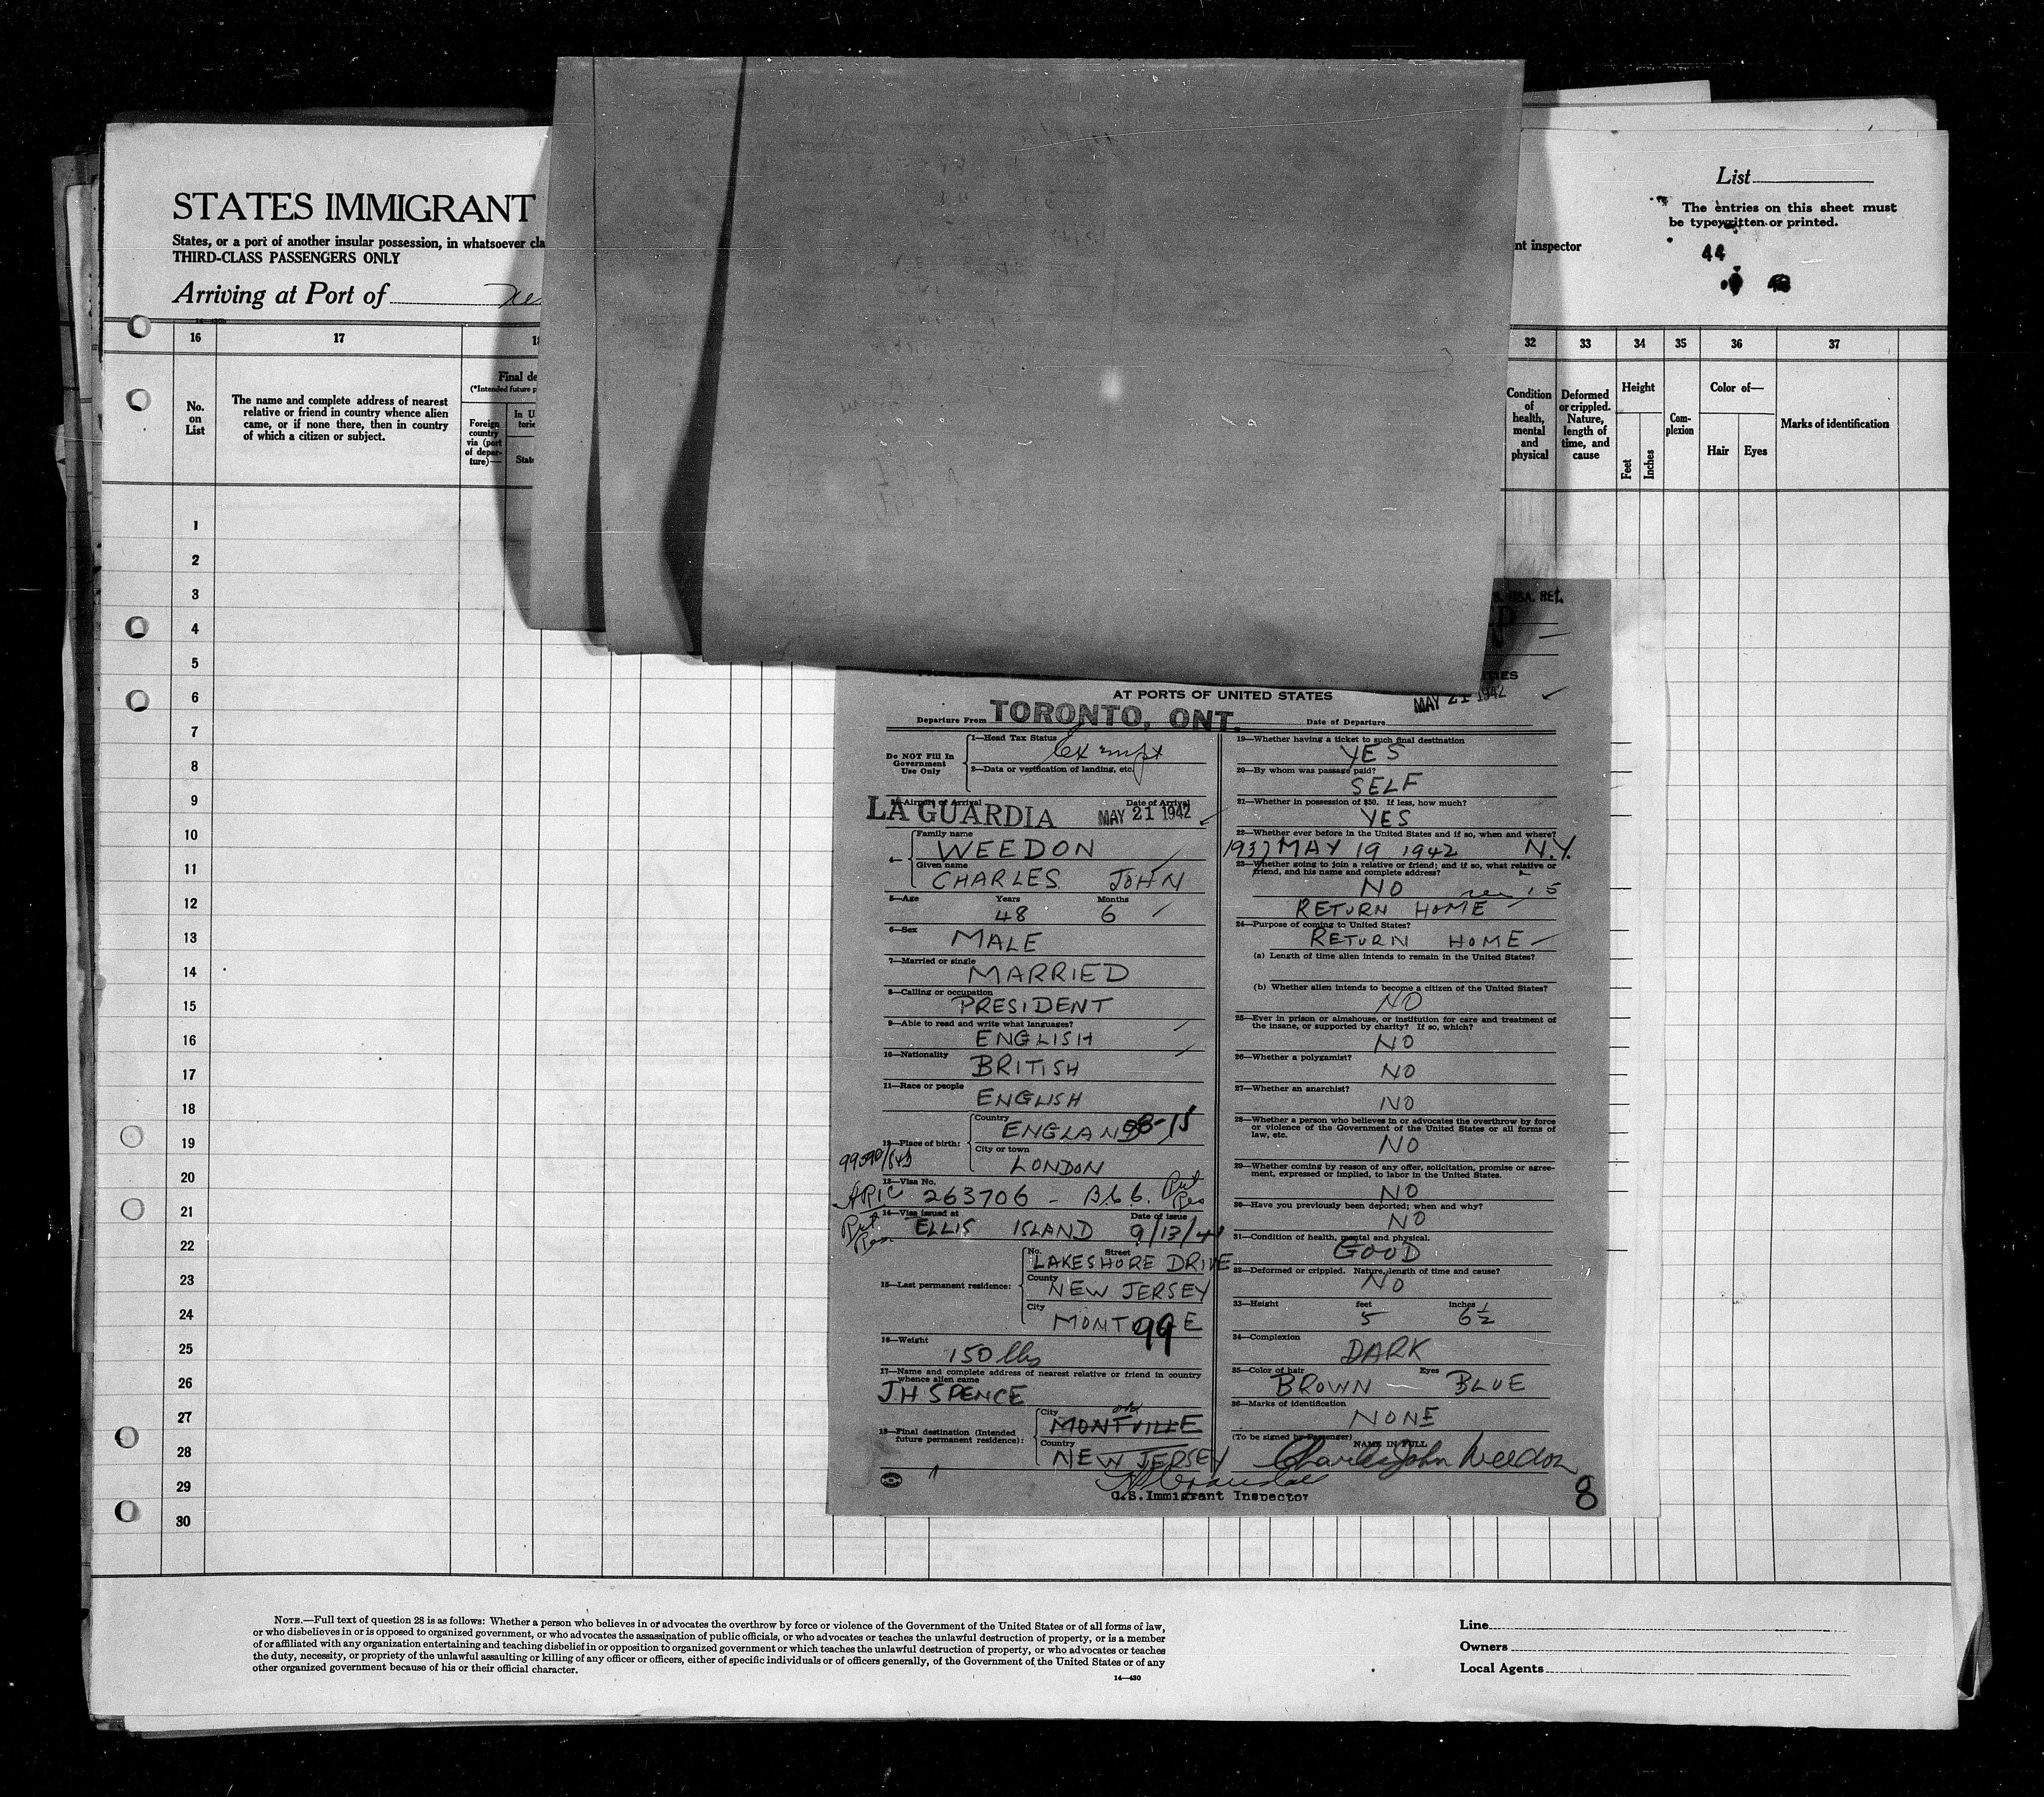 STATES IMMIGRANT
States, or a port of another insular possession, in whatsoever cla
THIRD-CLASS PASSENGERS ONLY
Arriving at Port of
nt inspector
List
The entries on this sheet must
be typewritten or printed.
44
16 17 18 32 33 34 35 36 37
No. on List
The name and complete address of nearest
relative or friend in country whence alien
came, or if none there, then in country
of which a citizen or subject.
Final de
(*Intended future p
Foreign country via (port of departure)—
In U
torie
State
Condition of health, mental and physical
Deformed or crippled. Nature, length of time, and cause
Height
Feet Inches
Complexion
Color of—
Hair Eyes
Marks of identification
1
2
3
4
5
6
7
8
9
10
11
12
13
14
15
16
17
18
19
20
21
22
23
24
25
26
27
28
29
30
AT PORTS OF UNITED STATES
MAY 21 1942
Departure From TORONTO, ONT. Date of Departure
Do NOT Fill In Government Use Only
1—Head Tax Status Exempt
2—Data or verification of landing, etc.
3—Airport of Arrival Date of Arrival
LA GUARDIA MAY 21 1942
4—
Family name
WEEDON
Given name
CHARLES JOHN
5—Age Years Months
48 6
6—Sex
MALE
7—Married or single
MARRIED
8—Calling or occupation
PRESIDENT
9—Able to read and write what languages?
ENGLISH
10—Nationality
BRITISH
11—Race or people
ENGLISH
12—Place of birth:
Country
ENGLAND 98-15
City or town
LONDON
13—Visa No.
263706 -
14—Visa issued at Date of issue
ELLIS ISLAND 9/13/41
15—Last permanent residence:
No. Street
LAKESHORE DRIVE
County
NEW JERSEY
City
MONT E
99
16—Weight
150 lbs
17—Name and complete address of nearest relative or friend in country
whence alien came
J.H SPENCE
18—Final destination (Intended
future permanent residence):
City
MONTVILLE
Country
NEW JERSEY
19—Whether having a ticket to such final destination
YES
20—By whom was passage paid?
SELF
21—Whether in possession of $50. If less, how much?
YES
22—Whether ever before in the United States and if so, when and where?
1937 MAY 19 1942 N.Y.
23—Whether going to join a relative or friend; and if so, what relative or
friend, and his name and complete address?
NO
RETURN HOME
24—Purpose of coming to United States?
RETURN HOME
(a) Length of time alien intends to remain in the United States?
(b) Whether alien intends to become a citizen of the United States?
NO
25—Ever in prison or almshouse, or institution for care and treatment of
the insane, or supported by charity? If so, which?
NO
26—Whether a polygamist?
NO
27—Whether an anarchist?
NO
28—Whether a person who believes in or advocates the overthrow by force
or violence of the Government of the United States or all forms of
law, etc.
NO
29—Whether coming by reason of any offer, solicitation, promise or agree-
ment, expressed or implied, to labor in the United States.
NO
30—Have you previously been deported; when and why?
NO
31—Condition of health, mental and physical.
GOOD
32—Deformed or crippled. Nature, length of time and cause?
NO
33—Height feet inches
5 6½
34—Complexion
DARK
35—Color of hair Eyes
BROWN BLUE
36—Marks of identification
NONE
(To be signed by Passenger)
NAME IN FULL
Charles John Weedon
U.S. Immigrant Inspector
8
NOTE.—Full text of question 28 is as follows: Whether a person who believes in or advocates the overthrow by force or violence of the Government of the United States or of all forms of law,
or who disbelieves in or is opposed to organized government, or who advocates the assassination of public officials, or who advocates or teaches the unlawful destruction of property, or is a member
of or affiliated with any organization entertaining and teaching disbelief in or opposition to organized government or which teaches the unlawful destruction of property, or who advocates or teaches
the duty, necessity, or propriety of the unlawful assaulting or killing of any officer or officers, either of specific individuals or of officers generally, of the Government of the United States or of any
other organized government because of his or their official character.
14—430
Line
Owners
Local Agents